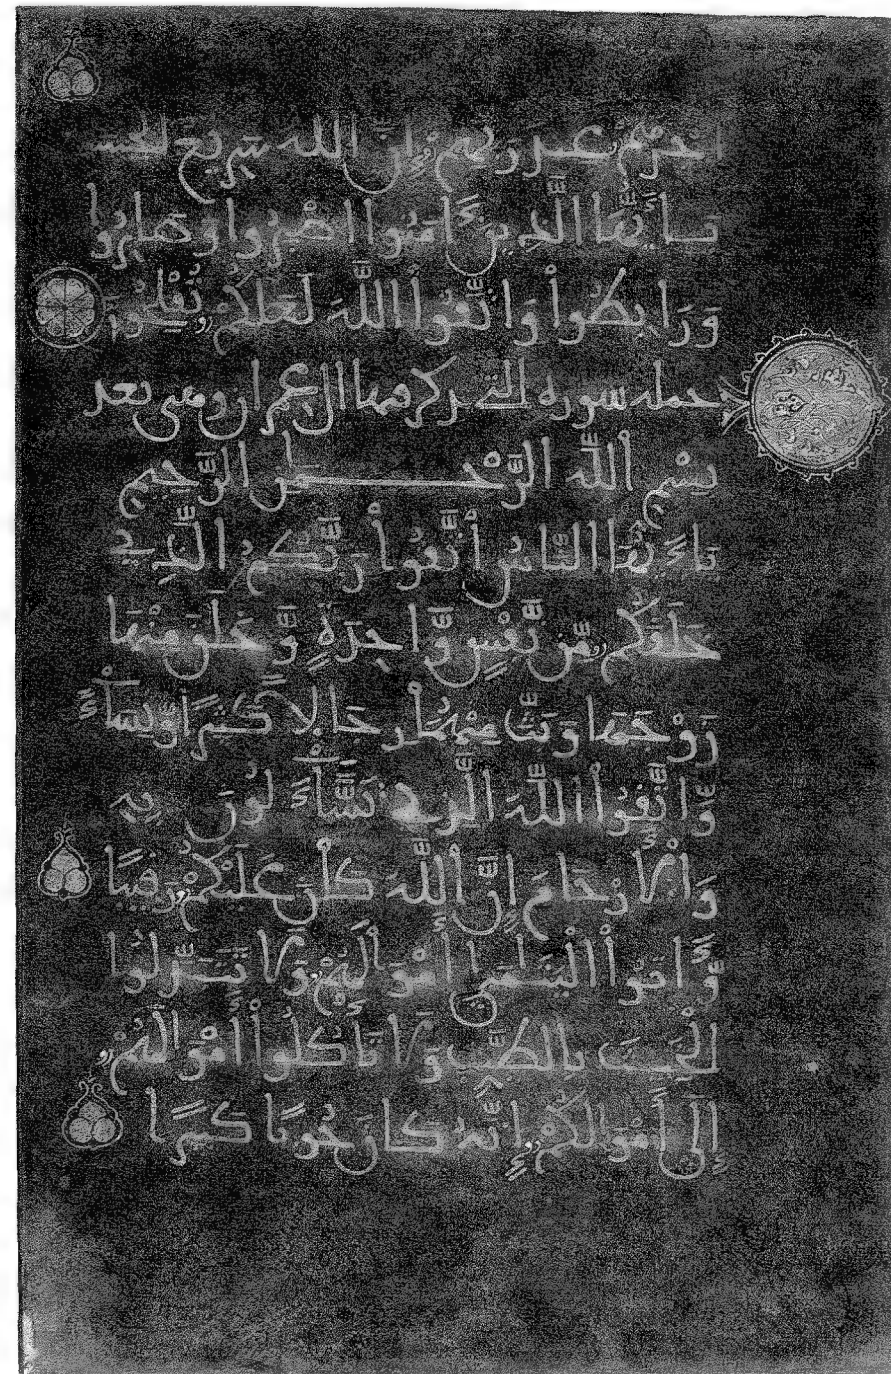 أَجْرُهُمْ عِندَ رَبِّهِمْ إِنَّ اللَّهَ سَرِيعُ الْحِسَ
يَـأَيُّهَا الَّذِينَ ءَامَنُوا اصْبِرُوا وَصَابِرُوا
وَرَابِطُوا وَاتَّقُوا اللَّهَ لَعَلَّكُمْ تُفْلِحُونَ
سوره ال عمران
بِسْمِ اللَّهِ الرَّحْمَنِ الرَّحِيمِ
يَأَيُّهَا النَّاسُ اتَّقُوا رَبَّكُمُ الَّذِي
خَلَقَكُم مِّن نَّفْسٍ وَّاحِدَةٍ وَّخَلَقَ مِنْهَا
زَوْجَهَا وَبَثَّ مِنْهُمَا رِجَالًا كَثِيرًا وَّنِسَاءً
وَاتَّقُوا اللَّهَ الَّذِي تَسَّاءَلُونَ بِهِ
وَالْأَرْحَامَ إِنَّ اللَّهَ كَانَ عَلَيْكُمْ رَقِيبًا
وَءَاتُوا الْيَتَمَى أَمْوَلَهُمْ وَلَا تَتَبَدَّلُوا
الْخَبِيثَ بِالطَّيِّبِ وَلَا تَأْكُلُوا أَمْوَلَهُمْ
إِلَى أَمْوَالِكُمْ إِنَّهُ كَانَ حُوبًا كَبِيرًا